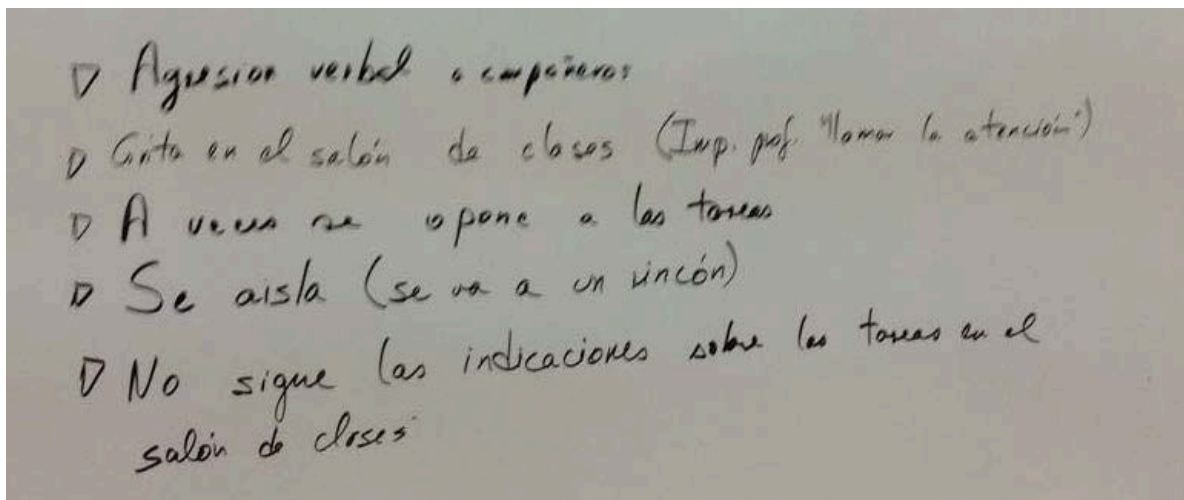 ▷ Agresion verbal a compañeros
▷ Grita en el salón de clases (Imp. prof. "llamar la atención")
▷ A veces se opone a las tareas
▷ Se aisla (se va a un rincón)
▷ No sigue las indicaciones sobre las tareas en el
salón de clases